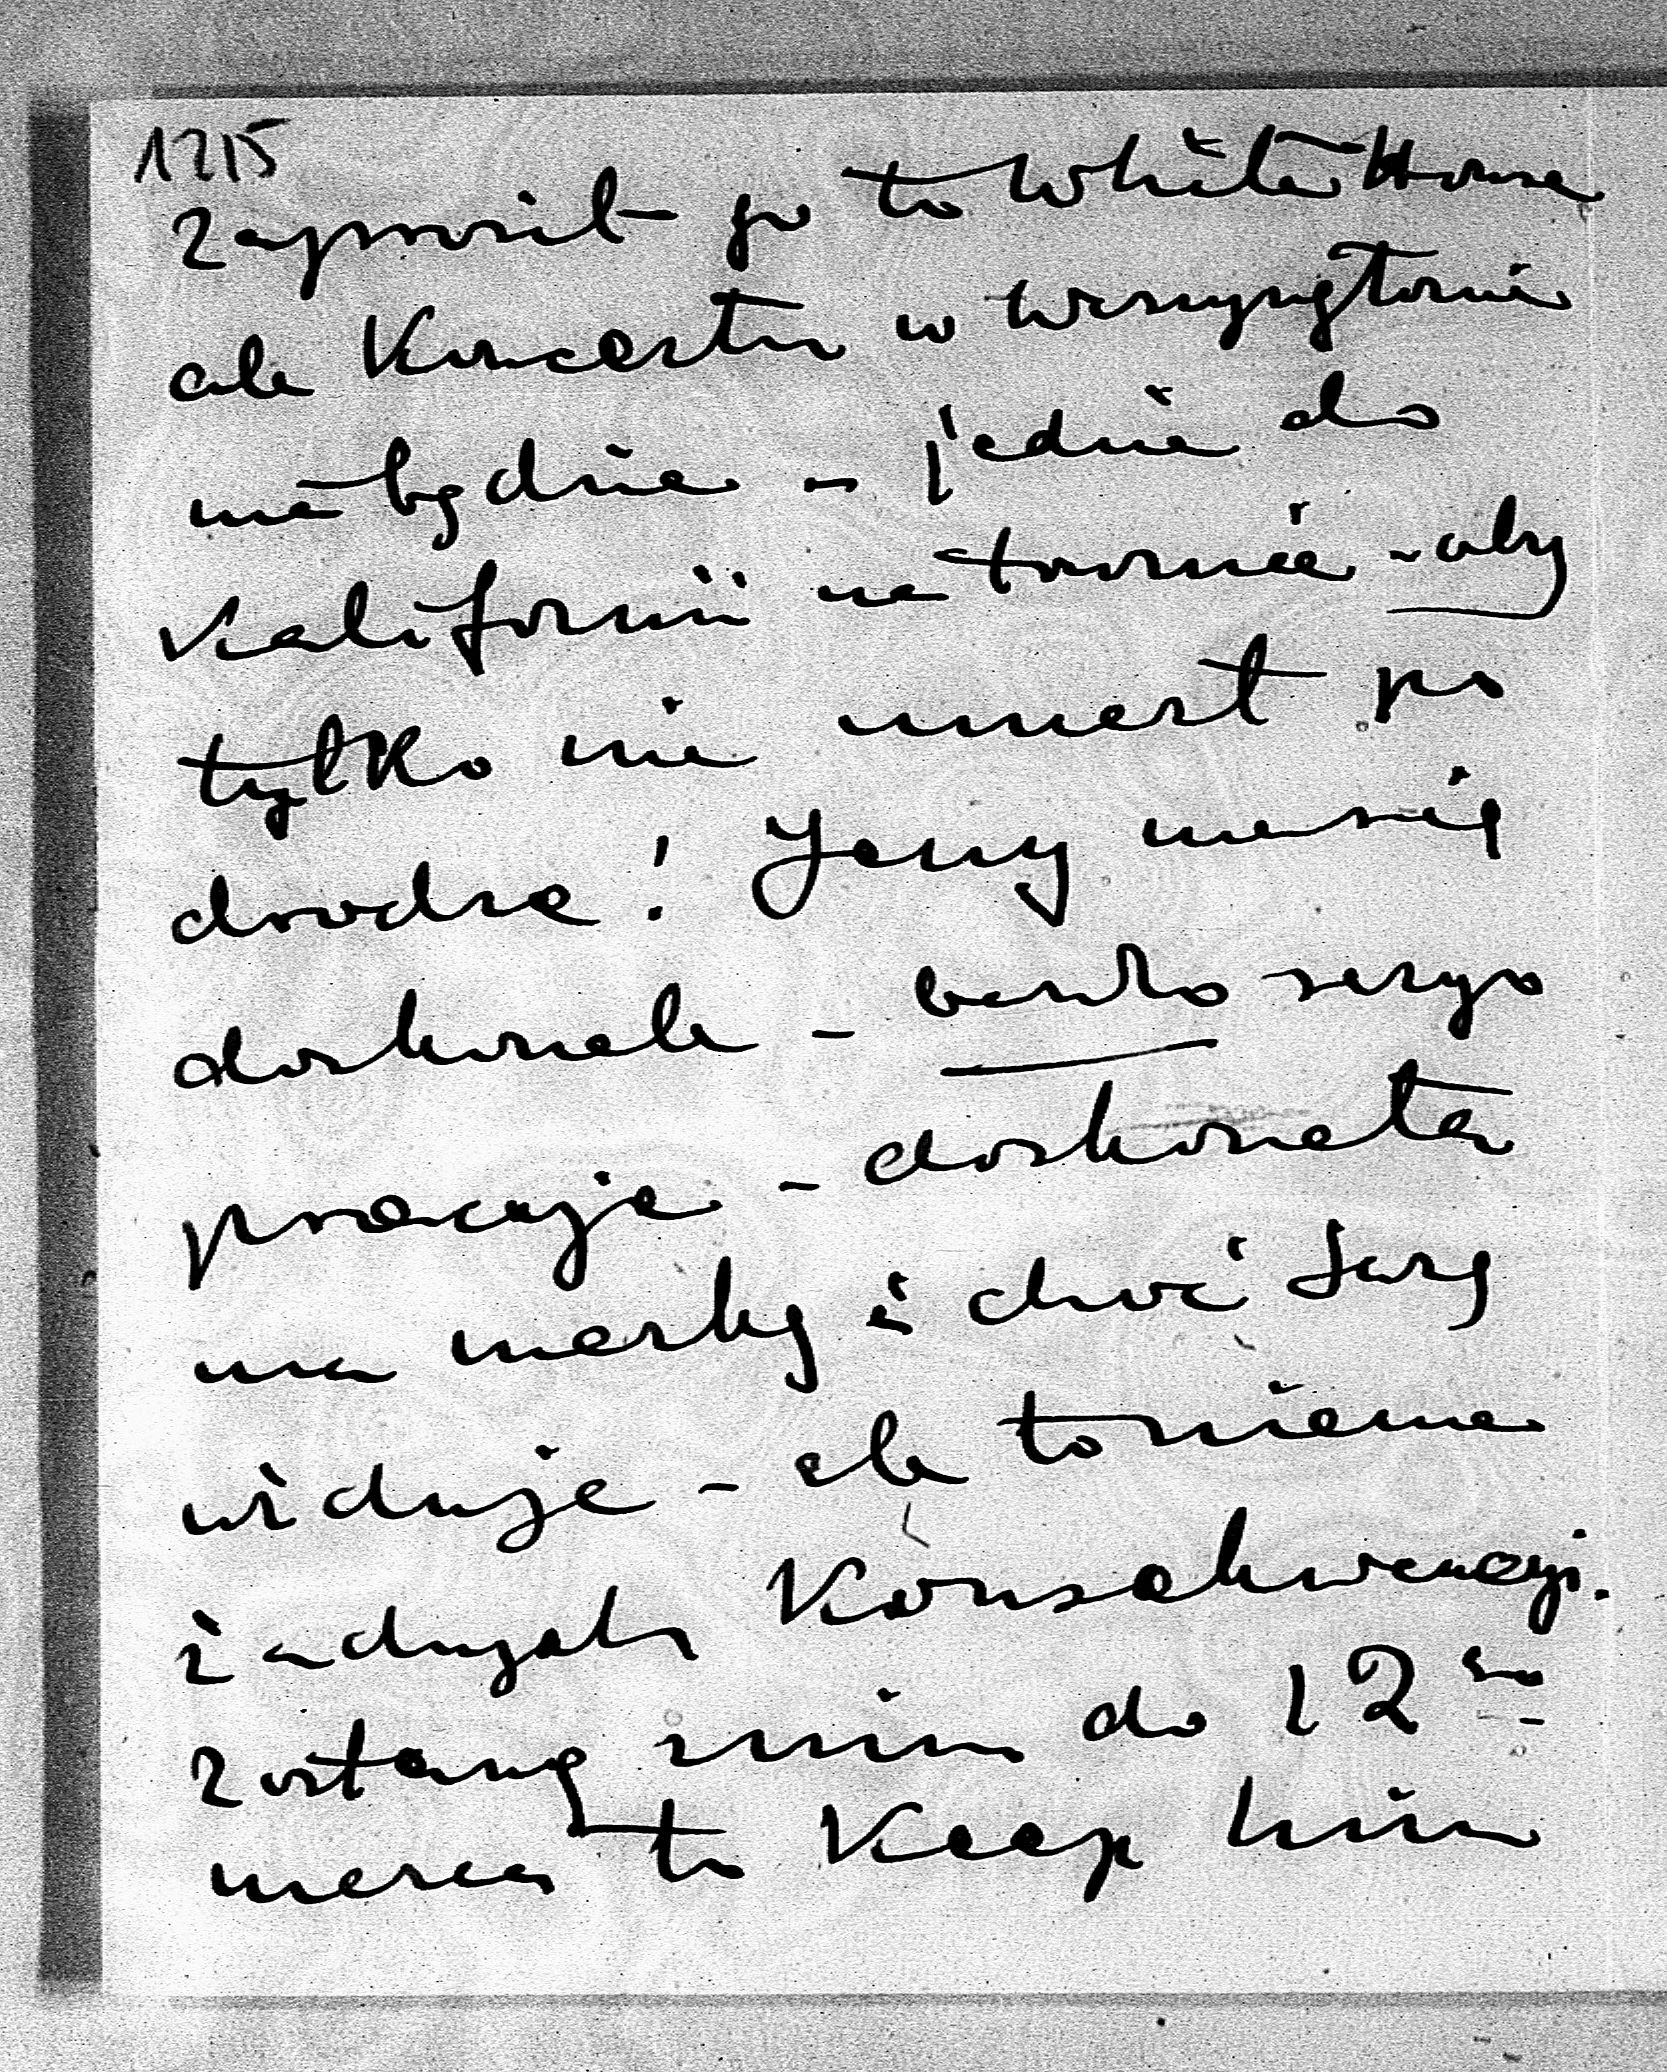 1215
zaprosił go to White House
ale Koncertu w Waszyngtonie
nie będzie – jedzie do
Kalifornii na tournée – aby
tylko nie umarł po
drodze! Jerzy ma się
doskonale – bardzo seryo
pracuje – doskonałą
ma markę i choć Jerzy
widuje – ale to nie ma
żadnych Konsekwencyi.
zostanę z nim do 12 go
marca to Keep him